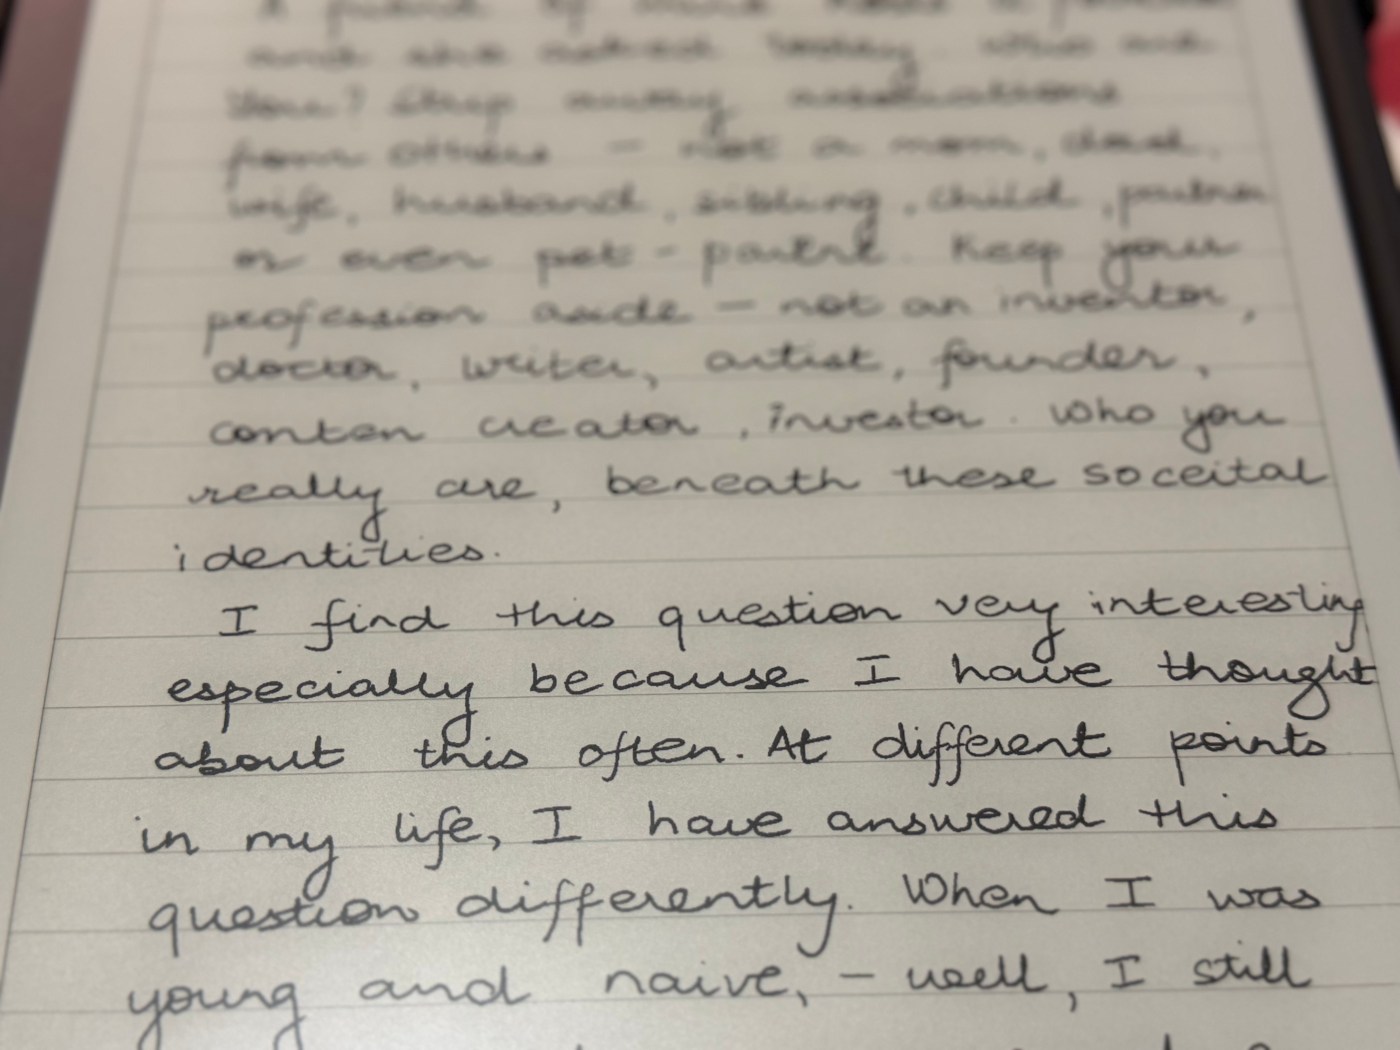 A friend of mine
and she asked today who are
You? Strip away associations
from others - not a mom, dad,
wife, husband, sibling, child, partner
or even pet - parent. Keep your
profession aside - not an inventor,
doctor, writer, artist, founder,
conten creator, investor. Who you
really are, beneath these soceital
identities.
I find this question very interesting
especially because I have thought
about this often. At different points
in my life, I have answered this
question differently. When I was
young and naive, - well, I still